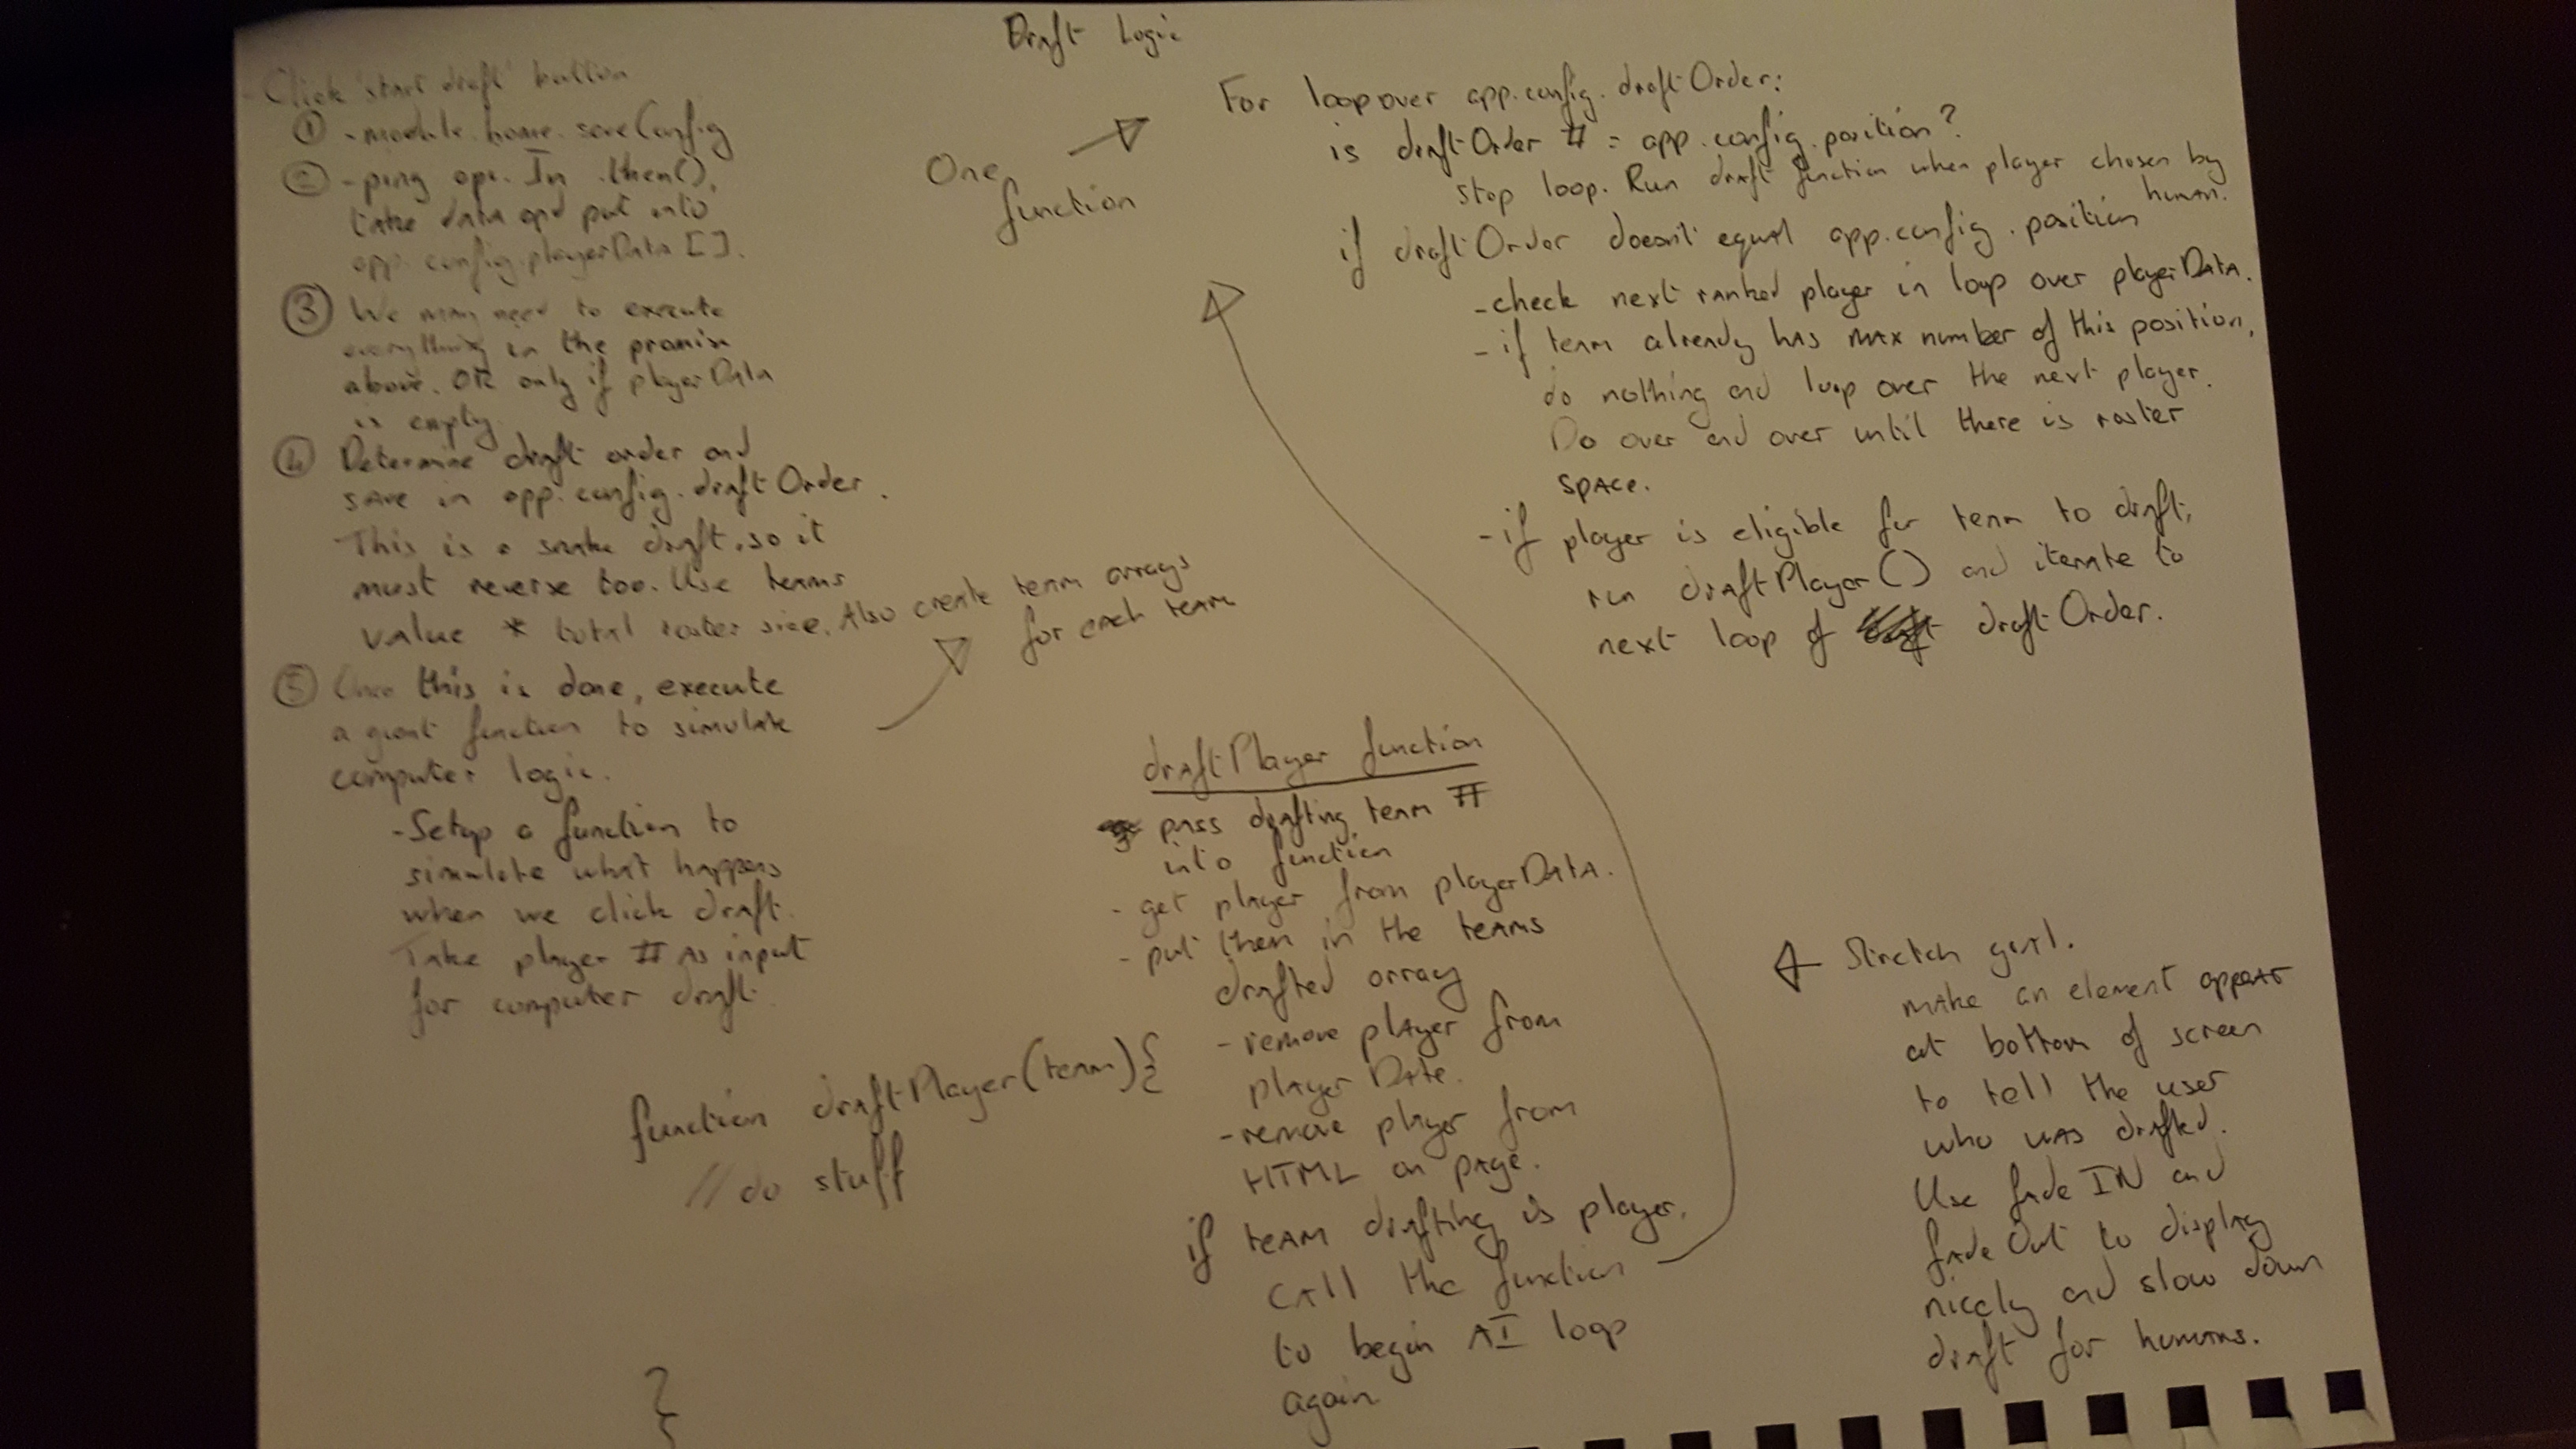 Draft Logic
- Click 'start draft' button
① - module.home.saveConfig
② - ping api. In .then(),
take data and put into
app.config.playerData [].
③ We may need to execute
everything in the promise
above. OR only if playerData
is empty.
④ Determine draft order and
save in app.config.draftOrder.
This is a snake draft, so it
must reverse too. Use teams
value * total roster size. Also create team arrays
for each team
⑤ Once this is done, execute
a giant function to simulate
computer logic.
- Setup a function to
simulate what happens
when we click draft.
Take player # as input
for computer draft.
function draftPlayer(team){
// do stuff
}
One
function
For loop over app.config.draftOrder:
is draftOrder # = app.config.position?
stop loop. Run draft function when player chosen by
human.
if draftOrder doesn't equal app.config.position
- check next ranked player in loop over playerData.
- if team already has max number of this position,
do nothing and loop over the next player.
Do over and over until there is roster
space.
- if player is eligible for team to draft,
run draftPlayer() and iterate to
next loop of draftOrder.
draftPlayer function
pass drafting team #
into function
- get player from playerData.
- put them in the teams
drafted array
- remove player from
playerData.
- remove player from
HTML on page.
if team drafting is player,
call the function
to begin AI loop
again
Stretch goal.
make an element appear
at bottom of screen
to tell the user
who was drafted.
Use fadeIN and
fadeOut to display
nicely and slow down
draft for humans.